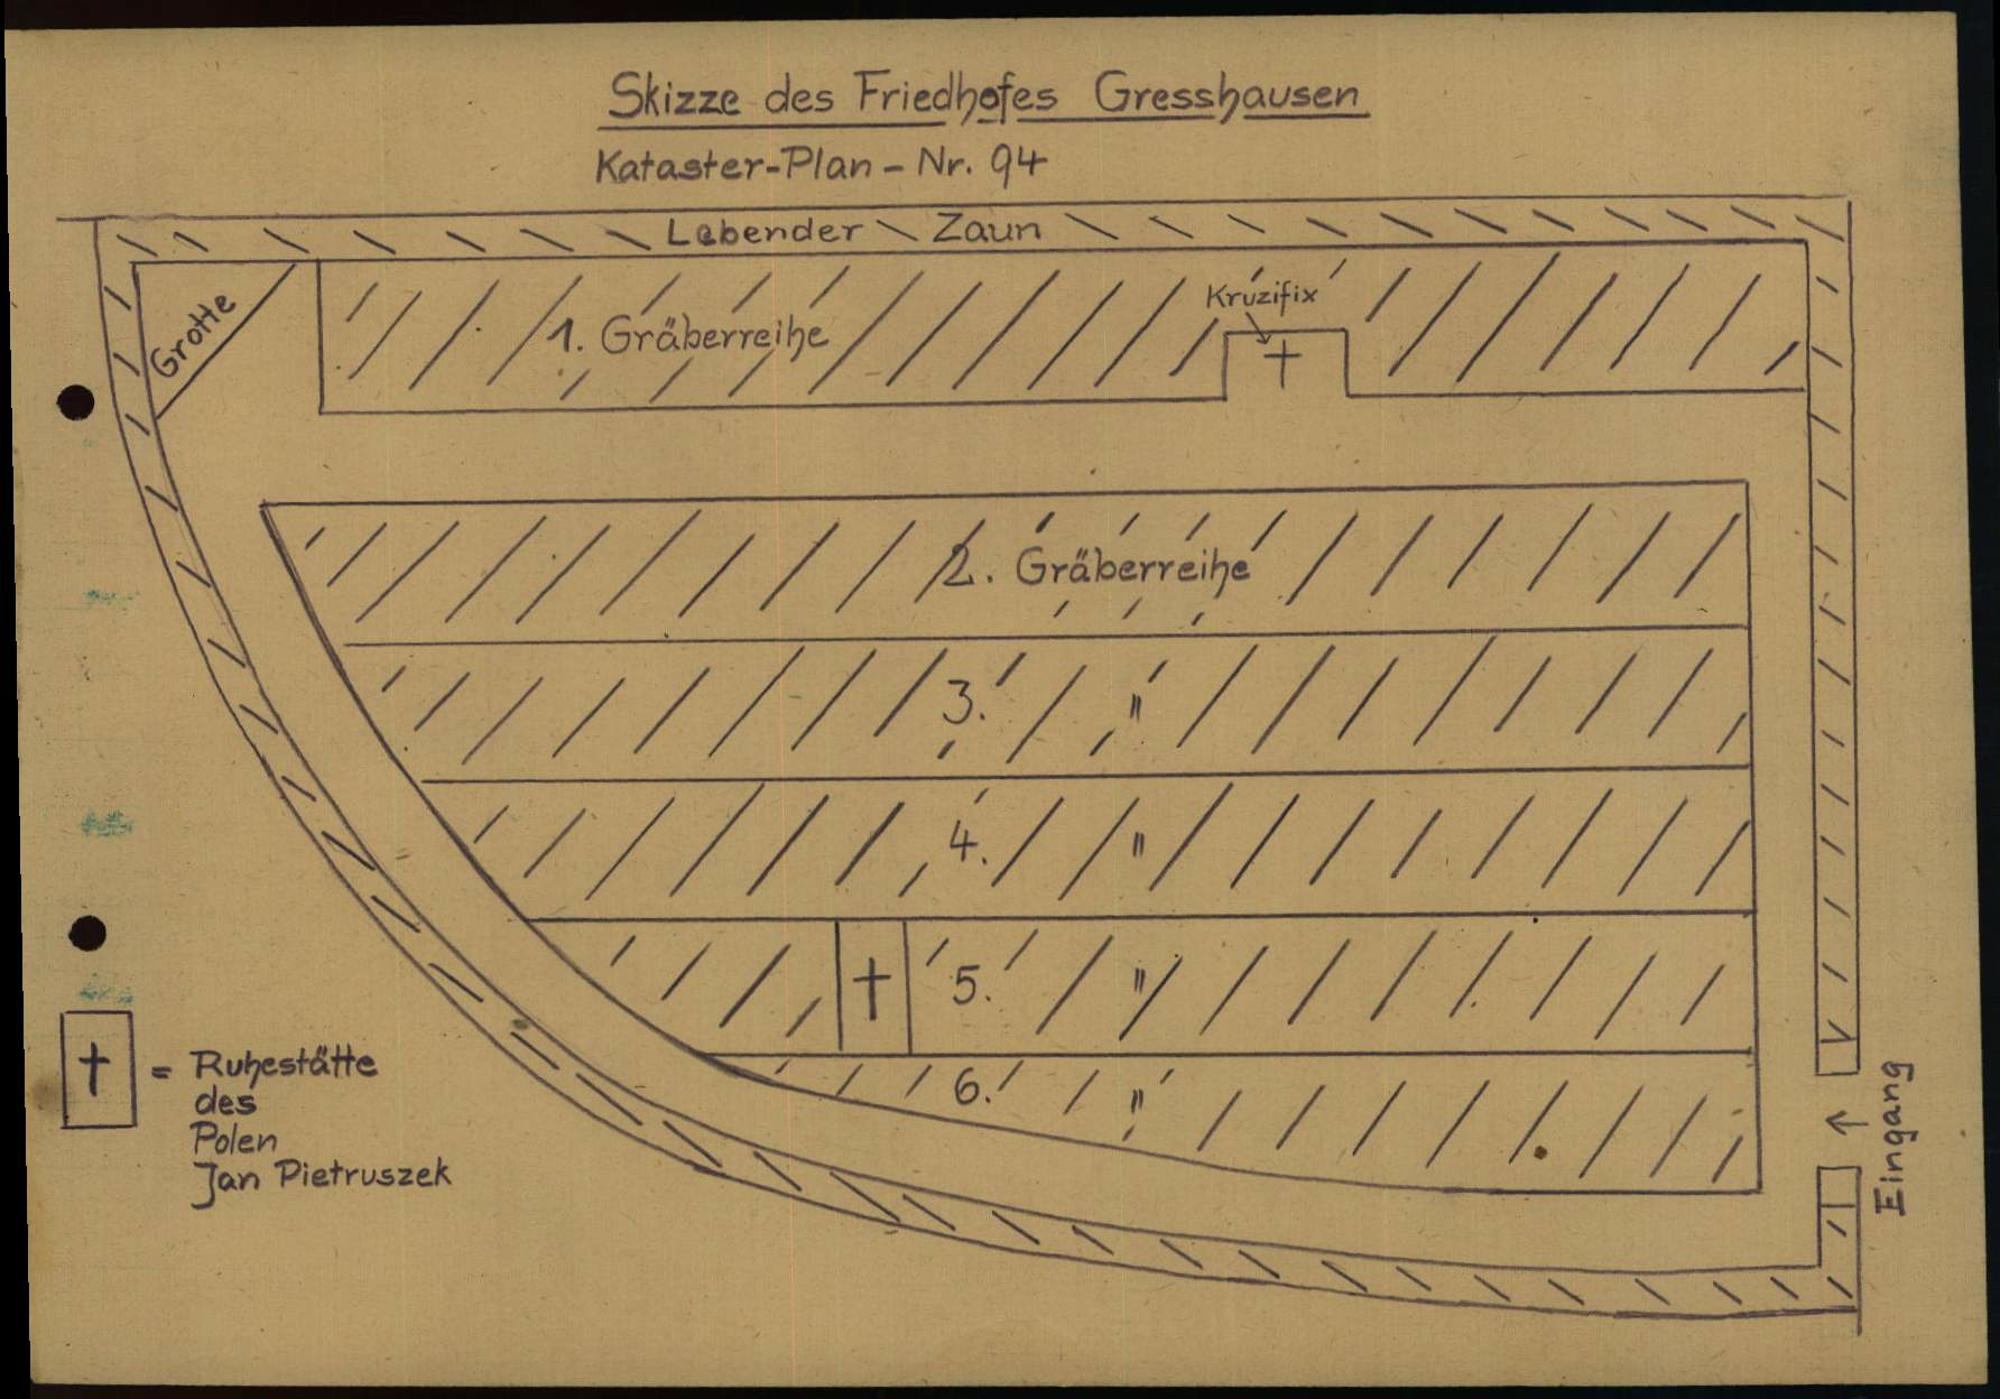 Skizze des Friedhofes Gresshausen
Kataster-Plan - Nr. 94
Lebender Zaun
Grotte
1. Gräberreihe
Kruzifix
2. Gräberreihe
3. "
4. "
5. "
6. "
= Ruhestätte
des
Polen
Jan Pietruszek
Eingang